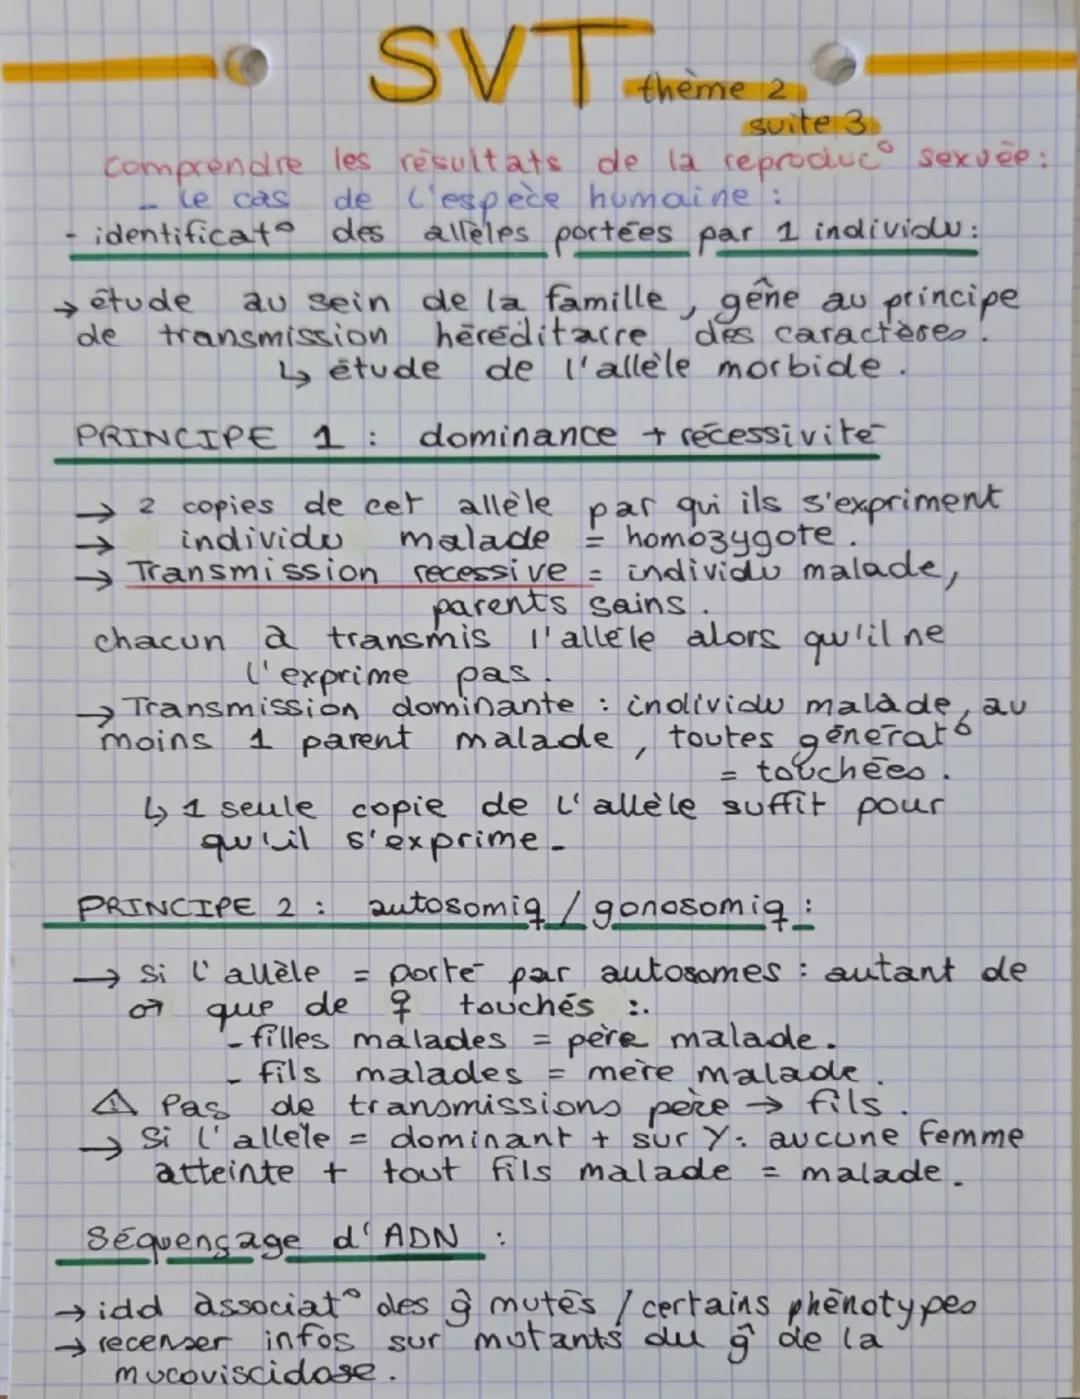 SVT thème 2
suite 3
comprendre les résultats de la reproduc° sexuée :
- le cas de l'espèce humaine :
- identificat° des allèles portées par 1 individu :
→ étude au sein de la famille, gêne au principe
de transmission héréditaire des caractères.
↳ étude de l'allèle morbide.
PRINCIPE 1 : dominance + récessivité
→ 2 copies de cet allèle par qui ils s'expriment
→ individu malade = homozygote.
→ Transmission recessive = individu malade,
parents sains.
chacun à transmis l'allèle alors qu'il ne
l'exprime pas.
→ Transmission dominante : individu malade, au
moins 1 parent malade, toutes générat°
= touchées.
↳ 1 seule copie de l'allèle suffit pour
qu'il s'exprime -
PRINCIPE 2 : autosomiq / gonosomiq :
→ Si l'allèle = porté par autosomes : autant de
♂ que de ♀ touchés :.
- filles malades = père malade.
- fils malades = mère malade.
⚠ Pas de transmissions père → fils.
→ Si l'allele = dominant + sur Y : aucune femme
atteinte + tout fils malade = malade.
Séquençage d'ADN :
→ idd associat° des ĝ mutés / certains phénotypes
→ recenser infos sur mutants du ĝ de la
mucoviscidose.